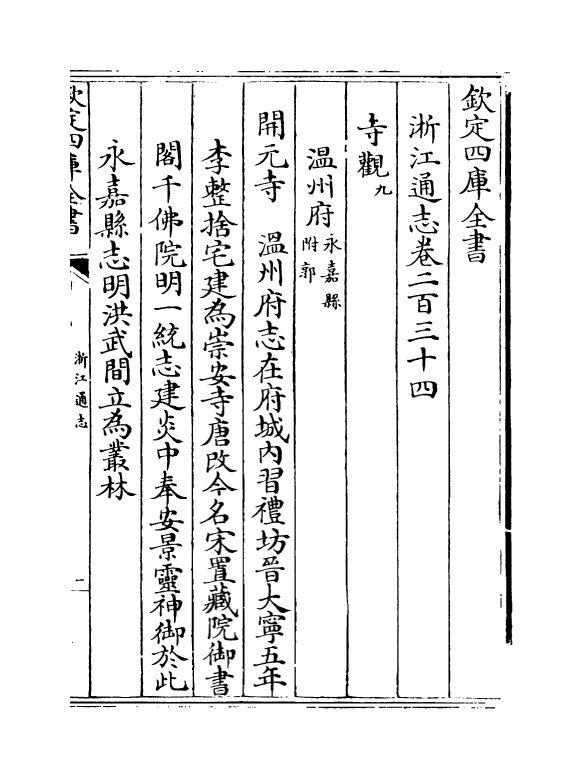 欽定四庫全書
浙江通志卷二百三十四
寺觀九
溫州府永嘉縣附郭
開元寺　溫州府志在府城內習禮坊晉大寧五年
李整捨宅建為崇安寺唐改今名宋置藏院御書
閣千佛院明一統志建炎中奉安景靈神御於此
永嘉縣志明洪武間立為叢林
欽定四庫全書
浙江通志